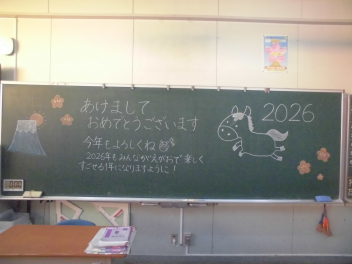 あけまして
おめでとうございます
今年もよろしくね
2026年もみんながえがおで楽しく
すごせる1年になりますように！
2026